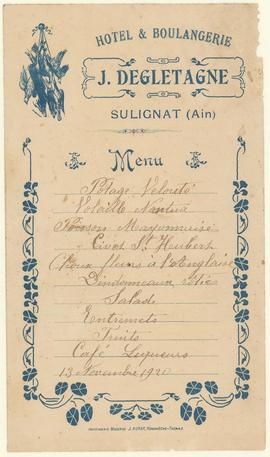 HOTEL & BOULANGERIE
J. DEGLETAGNE
SULIGNAT (Ain)
Menu
Potage Velouté
Volaille Nantua
Poisson Mayonnaise
Civet St Heubert
Choux fleurs à l'Anglaise
Dindonneaux rôtis
Salade
Entremets
Fruits
Café Liqueurs
13 Novembre 1920